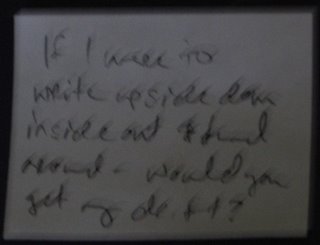 If I were to
write upside down
inside out & turned
around - would you
get my drift?